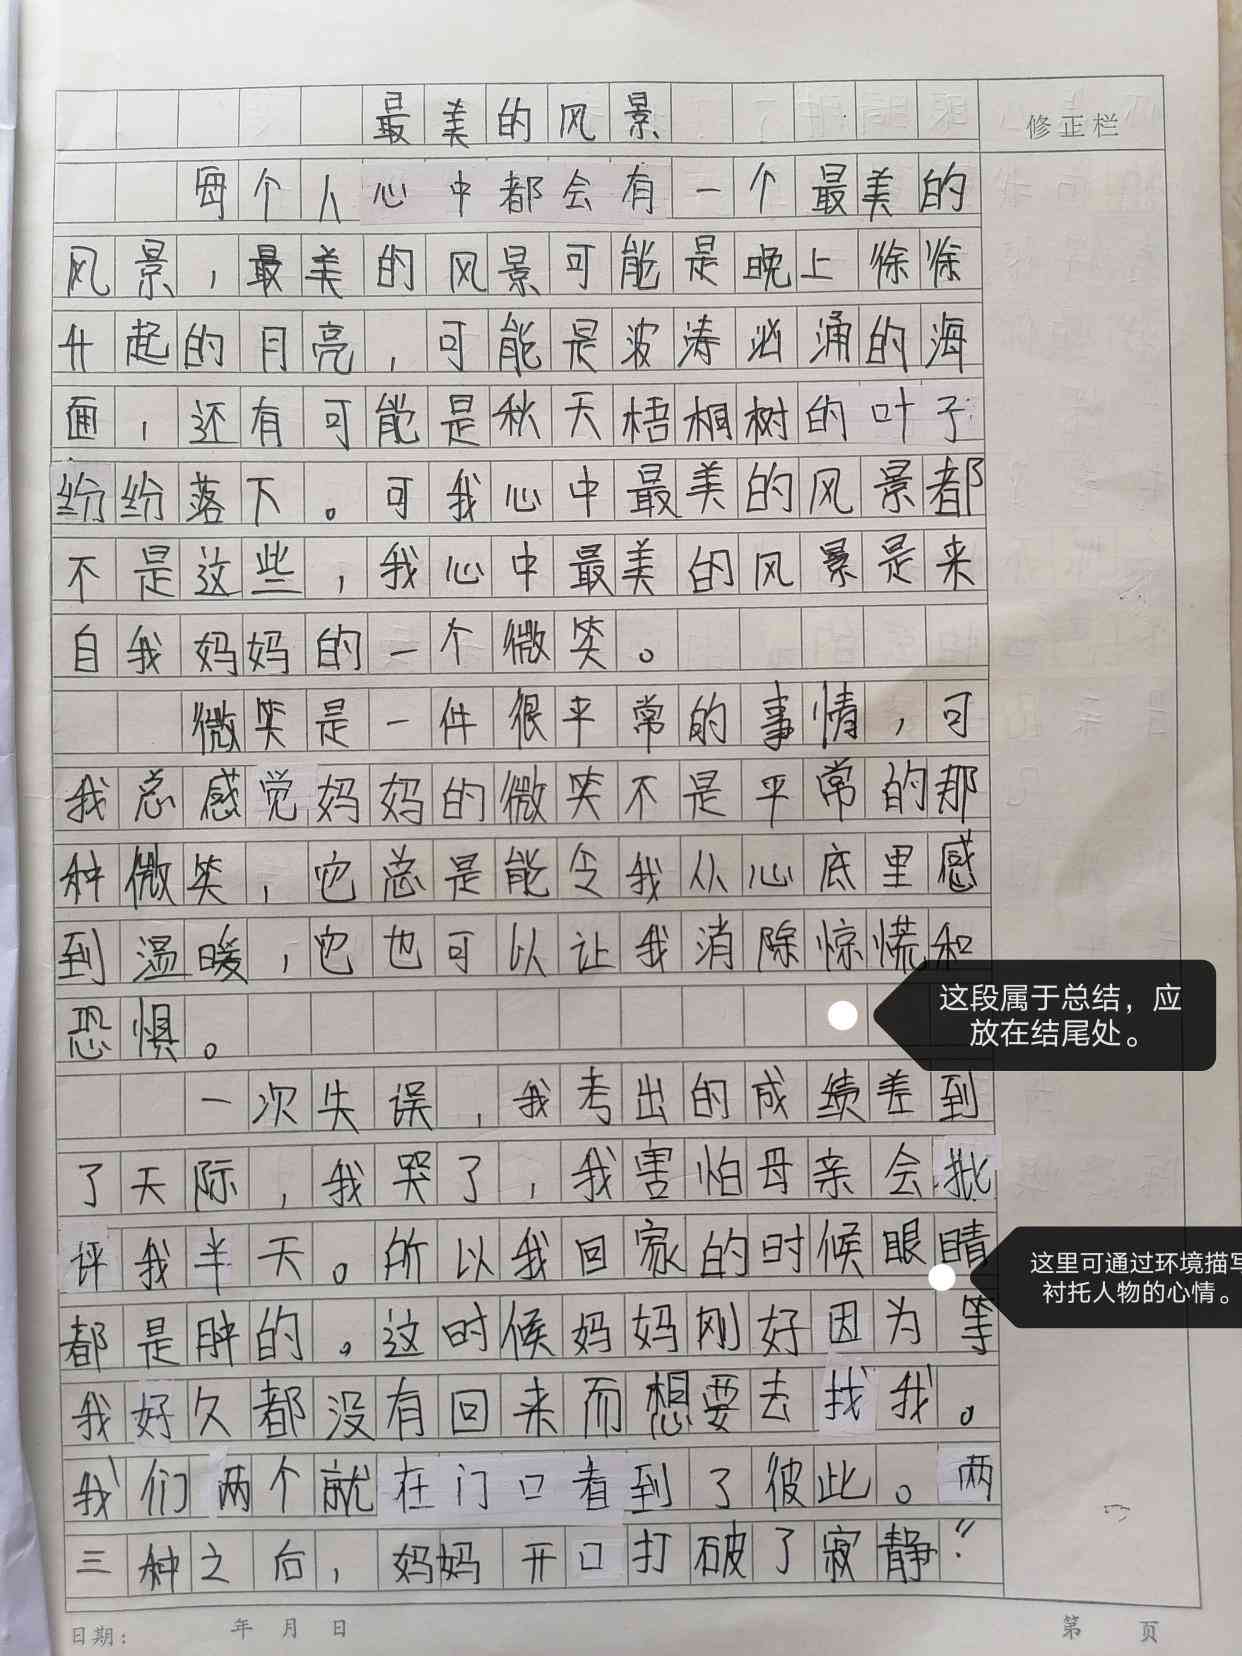 最美的风景
修正栏
每个人心中都会有一个最美的
风景，最美的风景可能是晚上徐徐
升起的月亮，可能是波涛汹涌的海
面，还有可能是秋天梧桐树的叶子
纷纷落下。可我心中最美的风景都
不是这些，我心中最美的风景是来
自我妈妈的一个微笑。
微笑是一件很平常的事情，可
我总感觉妈妈的微笑不是平常的那
种微笑，它总是能令我从心底里感
到温暖，它也可以让我消除惊慌和
恐惧。
这段属于总结，应
放在结尾处。
一次失误，我考出的成绩差到
了天际，我哭了，我害怕母亲会批
评我半天。所以我回家的时候眼睛
这里可通过环境描写
衬托人物的心情。
都是肿的。这时候妈妈刚好因为等
我好久都没有回来而想要去找我。
我们两个就在门口看到了彼此。两
三种之后，妈妈开口打破了寂静：“
日期：　年　月　日　第　页